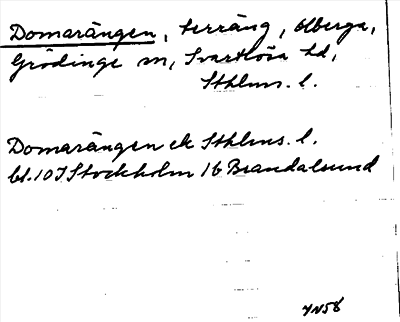 Domarängen, terräng, Elberga,
Grödinge sn, Svartlösa hd,
Sthlms. l.
Domarängen ek Sthlms. l.
bl. 10 I Stockholm 16 Brandalsund